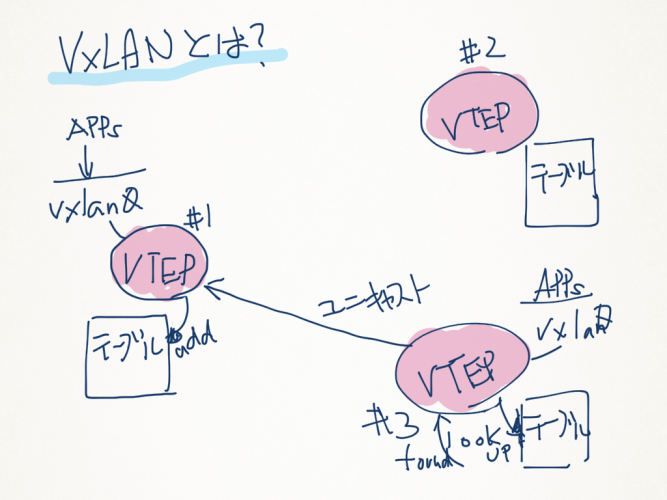 VxLANとは?
#2
VTEP
テーブル
APPs
vxlan0
#1
VTEP
テーブル
add
ユニキャスト
APPs
vxlan0
VTEP
#3
found
look
UP
テーブル